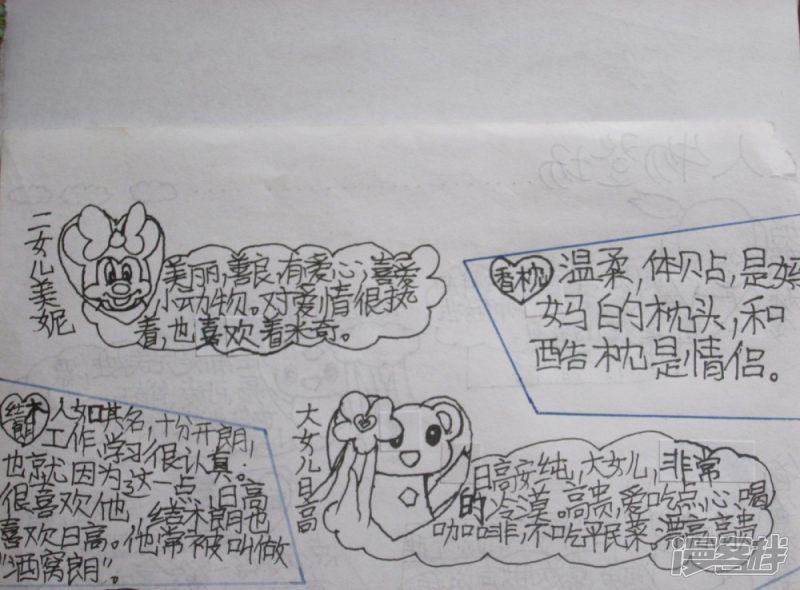 人物登场
二女儿美妮
美丽,善良,有爱心,喜爱
小动物。对爱情很执
着,也喜欢着米奇。
香枕
温柔,体贴,是妈
妈的枕头,和
酷枕是情侣。
结木朗
人如其名,十分开朗,
工作,学习很认真.
也就因为这一点,日高
很喜欢他,结木朗也
喜欢日高。他常被叫做
"酒窝朗"。
大女儿日高
日高安纯,大女儿,非常
的冷漠。高贵,爱吃点心,喝
咖啡,不吃平民菜。漂亮高贵
漫客栈